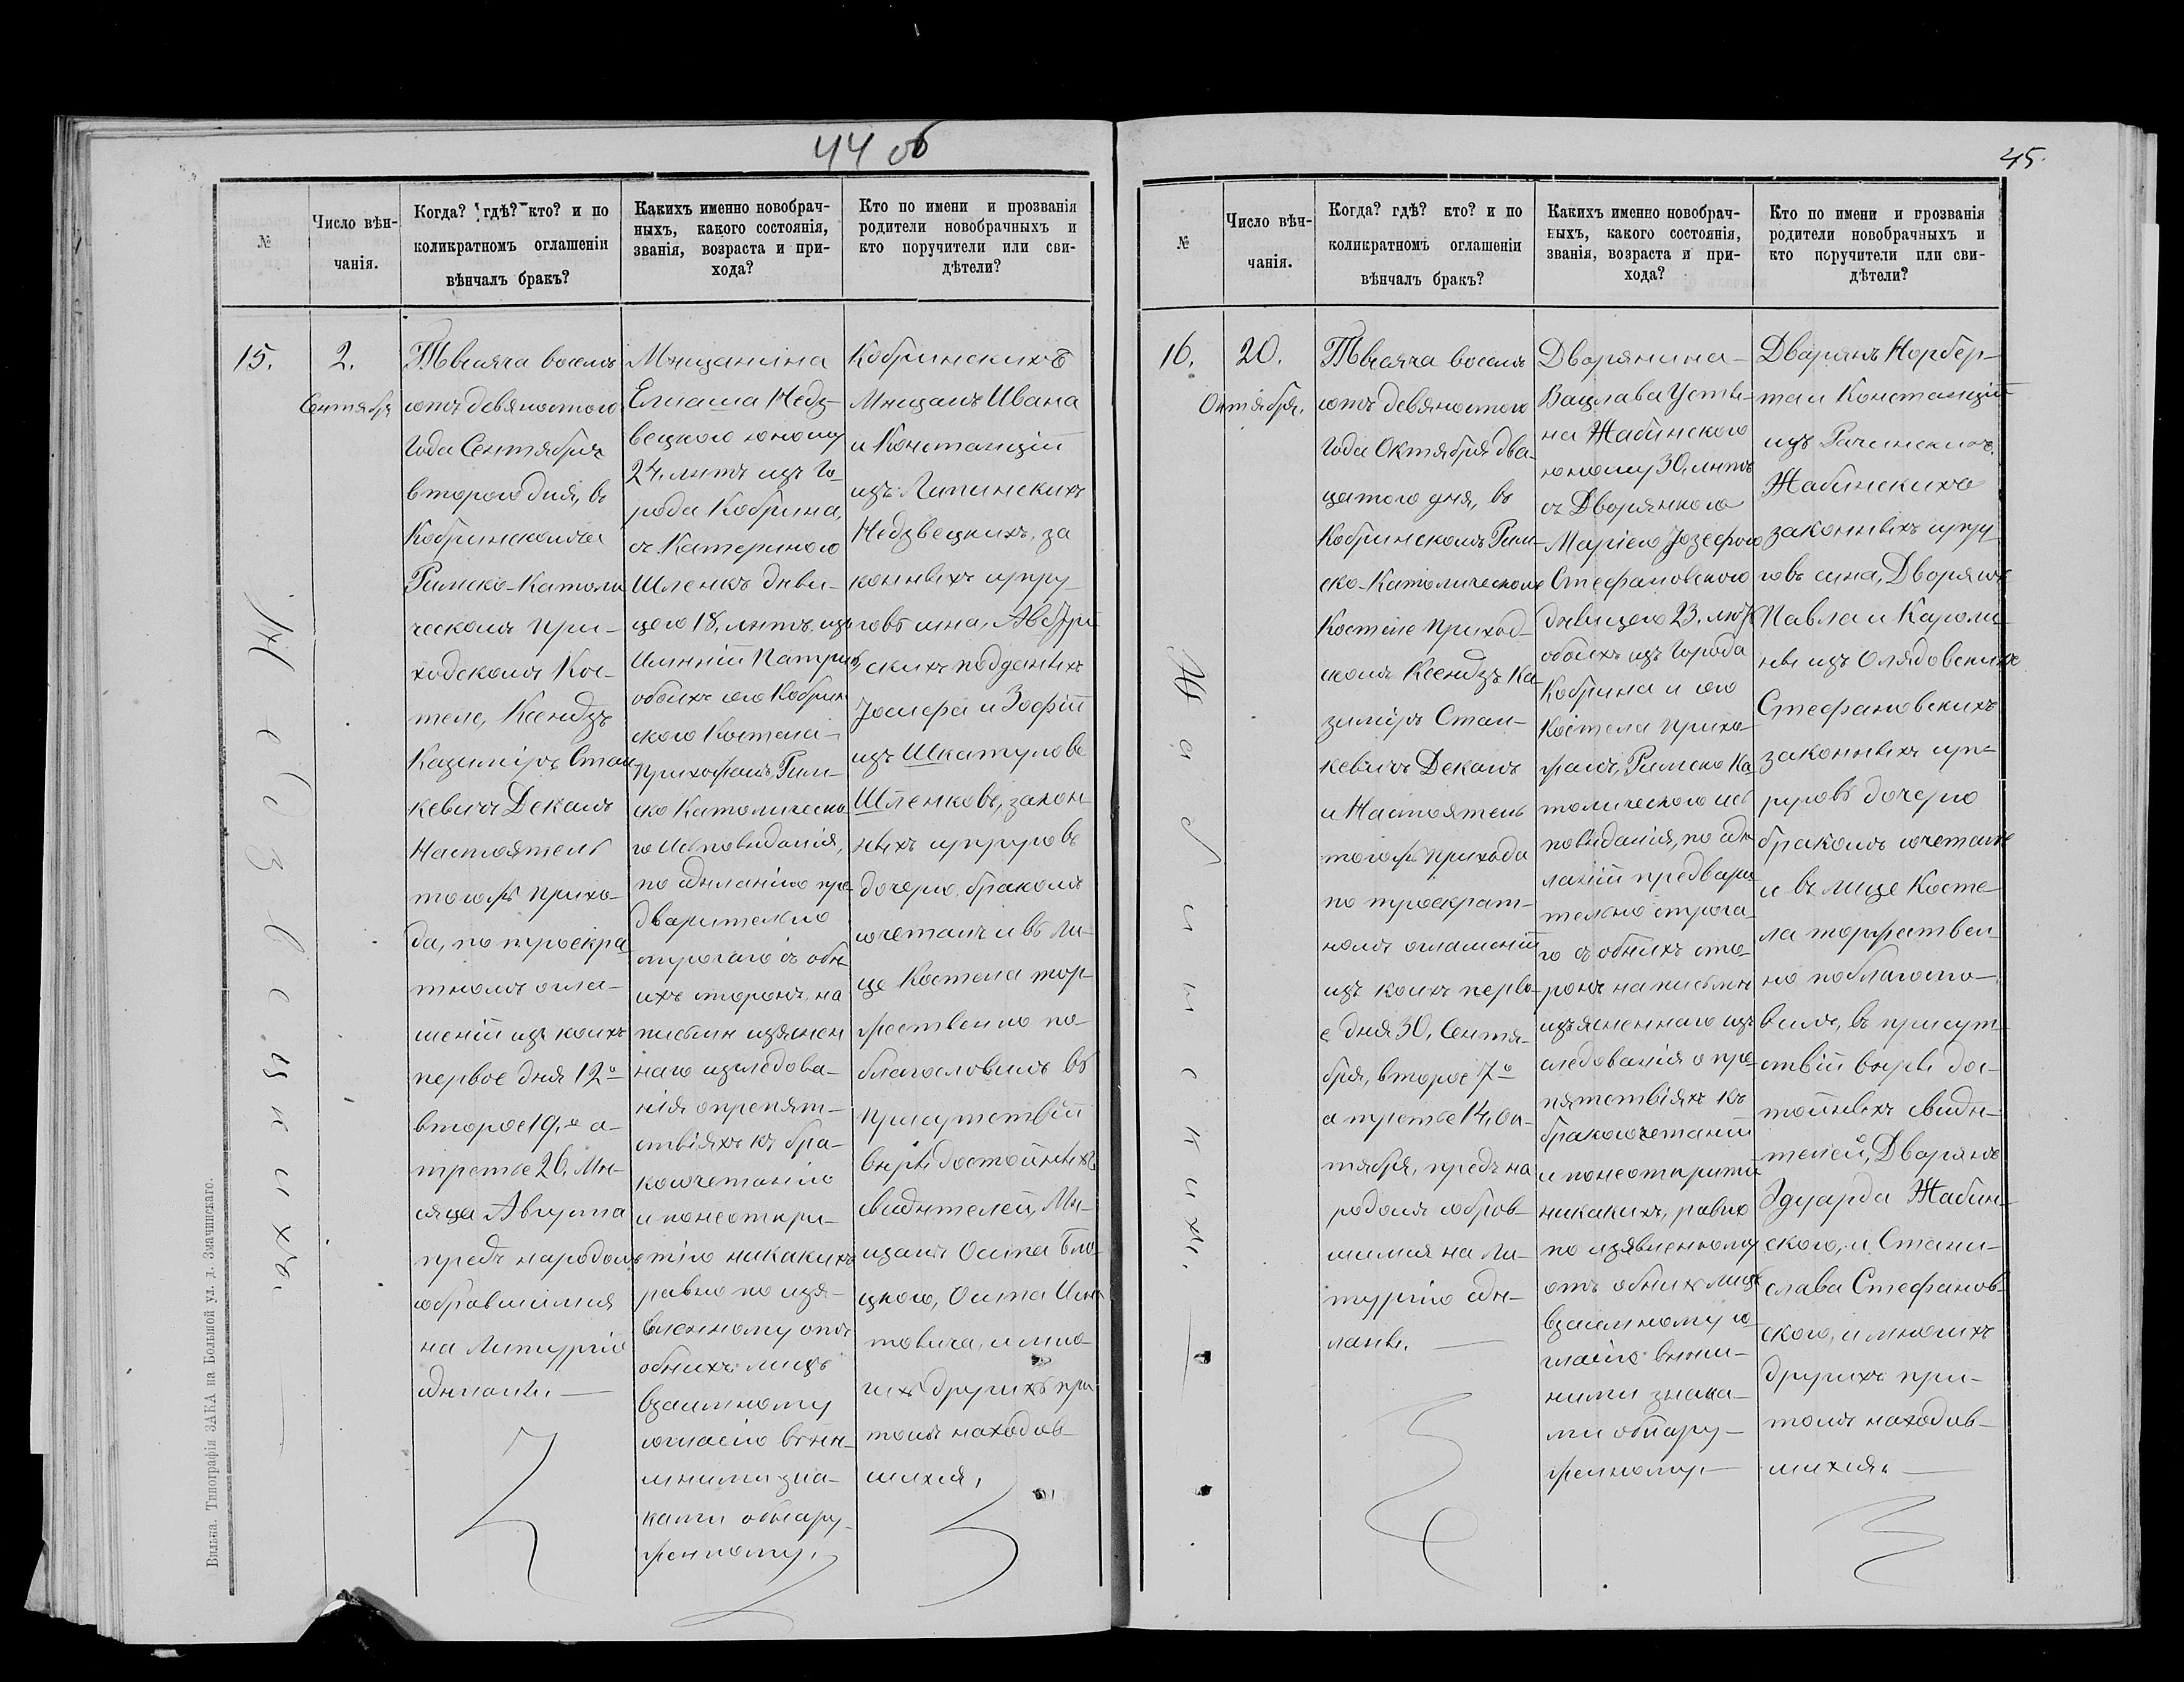 44 об
№
Число вѣн-
чанія.
Когда? гдѣ? кто? и по
коликратномъ оглашеніи
вѣнчалъ бракъ?
Какихъ именно новобрач-
ныхъ, какого состоянія,
званія, возраста и при-
хода?
Кто по имени и прозванія
родители новобрачныхъ и
кто поручители или сви-
дѣтели?
15.
2.
Сентября
Недзвецкихъ.
Тысяча восемь
сотъ девяностого
Года Сентября
второго дня, въ
Кобринскомъ
Римско-Католи
ческомъ При-
ходскомъ Кос-
теле, Ксендзъ
Казимиръ Стан
кевичъ Деканъ
Настоятель
тогожъ Прихо-
да, по троекра
тномъ огла-
шеніи изъ коихъ
первое дня 12го
второе 19.го а-
третье 26. Мѣ-
сяца Августа
предъ народомъ
собравшимся
на Литургію
сдѣланы. —
Мѣщанина
Елиаша Недз-
вецкого юношу
24. лѣтъ изъ Го-
рода Кобрина,
съ Катериною
Шленкъ дѣви-
цею 18. лѣтъ изъ
Имѣній Патрики
обоихъ сего Кобрин
ского Костела
Прихожанъ, Рим-
ско Католическо
го Исповѣданія,
по сдѣланію пре
дварительно
строгаго съ обѣ-
ихъ сторонъ, на
письмѣ изяснен
наго изследова-
нія о препят-
ствіяхъ къ бра-
косочетанію
и понеоткры-
тію никакихъ
равно по изя-
вленному отъ
обѣихъ лицъ
взаимному
согласію внѣ-
шними зна-
ками обнару-
женному.
Кобринскихъ
Мѣщанъ Ивана
и Констанціи
изъ Липинскихъ
Недзвецкихъ, за
конныхъ супру-
говъ сына, Австрі
скихъ подданыхъ
Јосифа и Зофіи
изъ Шкатуловъ
Шленковъ, закон-
ныхъ супруговъ
дочерю, бракомъ
сочеталъ и въ Ли-
це Костела тор-
жественно по-
благословилъ въ
присутствіи
вѣры достойныхъ
свидѣтелей, Мѣ-
щанъ Осипа
и мно-
гихъ другихъ при
томъ находив-
шихся.
Вильна. Типографія ЗАКА на Большой ул. д. Значинскаго.
45.
№
Число вѣн-
чанія.
Когда? гдѣ? кто? и по
коликратномъ оглашеніи
вѣнчалъ бракъ?
Какихъ именно новобрач-
ныхъ, какого состоянія,
званія, возраста и при-
хода?
Кто по имени и прозванія
родители новобрачныхъ и
кто поручители или сви-
дѣтели?
16.
20.
Октября.
Жабинскихъ.
Тысяча восемь
сотъ девяностого
Года Октября два
цатого дня, въ
Кобринскомъ Рим-
ско-Католическомъ
Костеле Приход-
скомъ Ксендзъ Ка
зимиръ Стан-
кевичъ Деканъ
и Настоятель
тогожъ Прихода
по троекрат-
номъ оглашеніи
изъ коихъ перво-
е дня 30. Сентя-
бря, второе 7го
а третье 14. Ок-
тября, предъ на
родомъ собрав-
шимся на Ли-
тургію сдѣ-
ланы. —
Дворянина
Вацлава Усти-
на Жабинского
юношу 30. лѣтъ
съ Дворянкою
Маріею Јозефою
Стефановскою
дѣвицею 23. лѣтъ
обоихъ изъ Города
Кобрина и сего
Костела Прихо-
жанъ, Римско Ка
толического Ис
повѣданія, по сдѣ
ланіи предвари
тельно строга-
го съ обѣихъ сто-
ронъ на письмѣ
изъясненнаго из
следованія о пре-
пятствіяхъ къ
бракосочетаніи
и понеоткрытію
никакихъ, равно
по изявленному
отъ обѣихъ лицъ
взаимному со-
гласію внѣш-
ними знака-
ми обнару-
женному. —
Дворянъ Норбер-
та и Констанціи
изъ Рачинскихъ
Жабинскихъ
законныхъ супру
говъ сына, Дворянъ
Павла и Кароли-
ны изъ Олядовскихъ
Стефановскихъ
законныхъ суп-
руговъ дочерю
бракомъ сочеталъ
и въ лице Косте-
ла торжествен-
но поблагосло-
вилъ, въ присут-
ствіи вѣры дос-
тойныхъ свидѣ-
телей, Дворянъ
Эдуарда Жабин-
ского, и Стани-
слава Стефанов-
ского, и многихъ
другихъ при-
томъ находив-
шихся. —